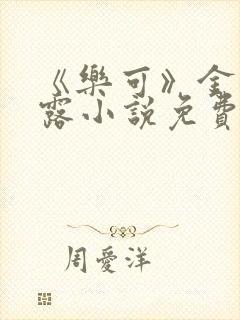 《樂可》金
露小說免費
周愛洋